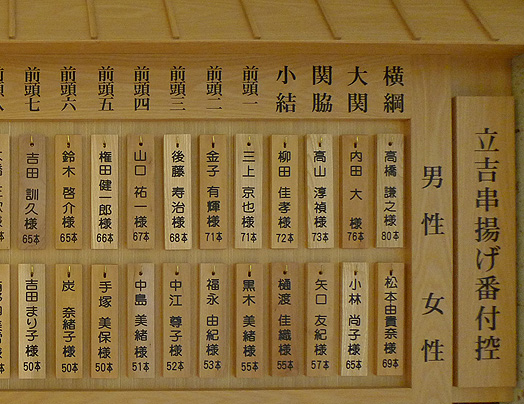 立吉串揚げ番付控
男性
女性
横綱
大関
関脇
小結
前頭一
前頭二
前頭三
前頭四
前頭五
前頭六
前頭七
高橋 謙之様 80本
内田 大 様 76本
高山 淳禎様 73本
柳田 佳孝様 72本
三上 京也様 71本
金子 有輝様 71本
後藤 寿治様 68本
山口 祐一様 67本
権田健一郎様 66本
鈴木 啓介様 65本
吉田 訓久様 65本
松本由貴奈様 69本
小林 尚子様 65本
矢口 友紀様 57本
樋渡 佳織様 55本
黒木 美緒様 55本
福永 由紀様 53本
中江 尊子様 52本
中島 美緒様 51本
手塚 美保様 50本
炭 奈緒子様 50本
吉田まり子様 50本